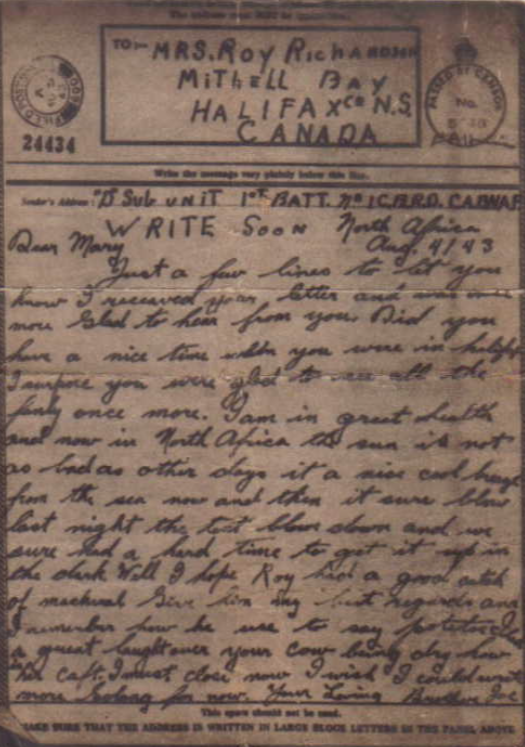 TO:- MRS. ROY RICHARDSON
MITHELL BAY
HALIFAX CO N.S.
CANADA
PASSED BY CENSOR
No.
24434
Write the message very plainly below this line.
Sender's Address: "D" SUB UNIT 1ST BATT. No 1 C.B.R.D.
WRITE SOON North Africa
Dear Mary Aug. 4/43
Just a few lines to let you
know I received your letter and was once
more glad to hear from you. Did you
have a nice time when you were in halifax
I supose you were glad to see all the
once more. I am in great health
and now in North Africa the sun is not
as bad as other days it a nice cool
from the sea now and then it sure blow
last night the tent blown down and we
sure had a hard time to get it up in
the dark Well I hope Roy had a good catch
of Give him my best regards and
I remember how he use to say
a great laugh over your cow being dry how
her calf. I must close now I wish I could write
more Solong for now. Your Loving Brother
This space should not be used.
MAKE SURE THAT THE ADDRESS IS WRITTEN IN LARGE BLOCK LETTERS IN THE PANEL ABOVE